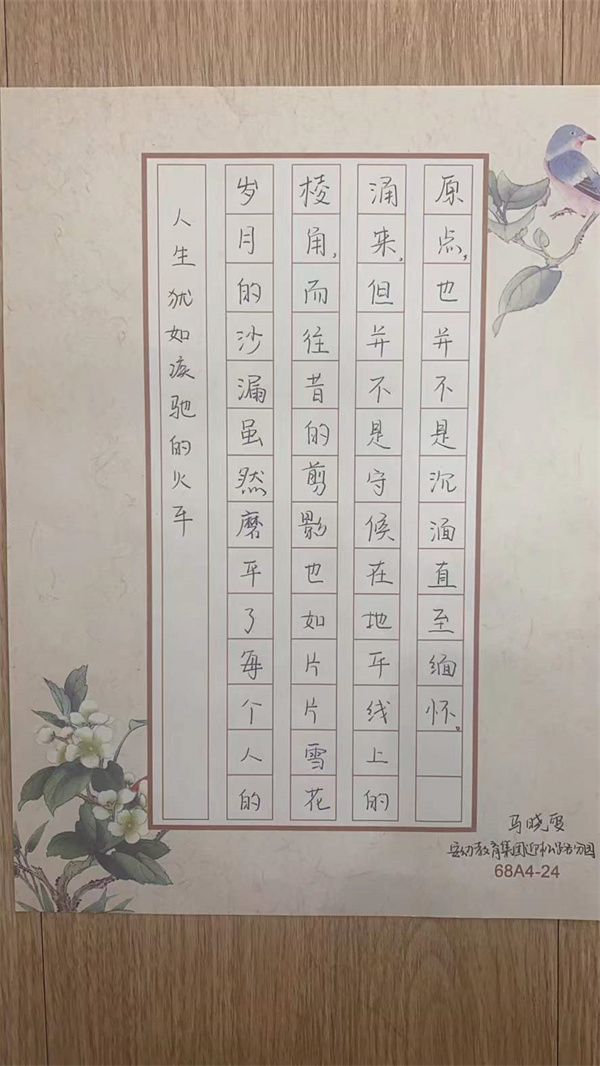 人生犹如疾驰的火车
岁月的沙漏虽然磨平了每个人的
棱角,而往昔的剪影也如片片雪花
涌来,但并不是守候在地平线上的
原点,也并不是沉湎直至缅怀。
马晓雯
教育集团
68A4-24